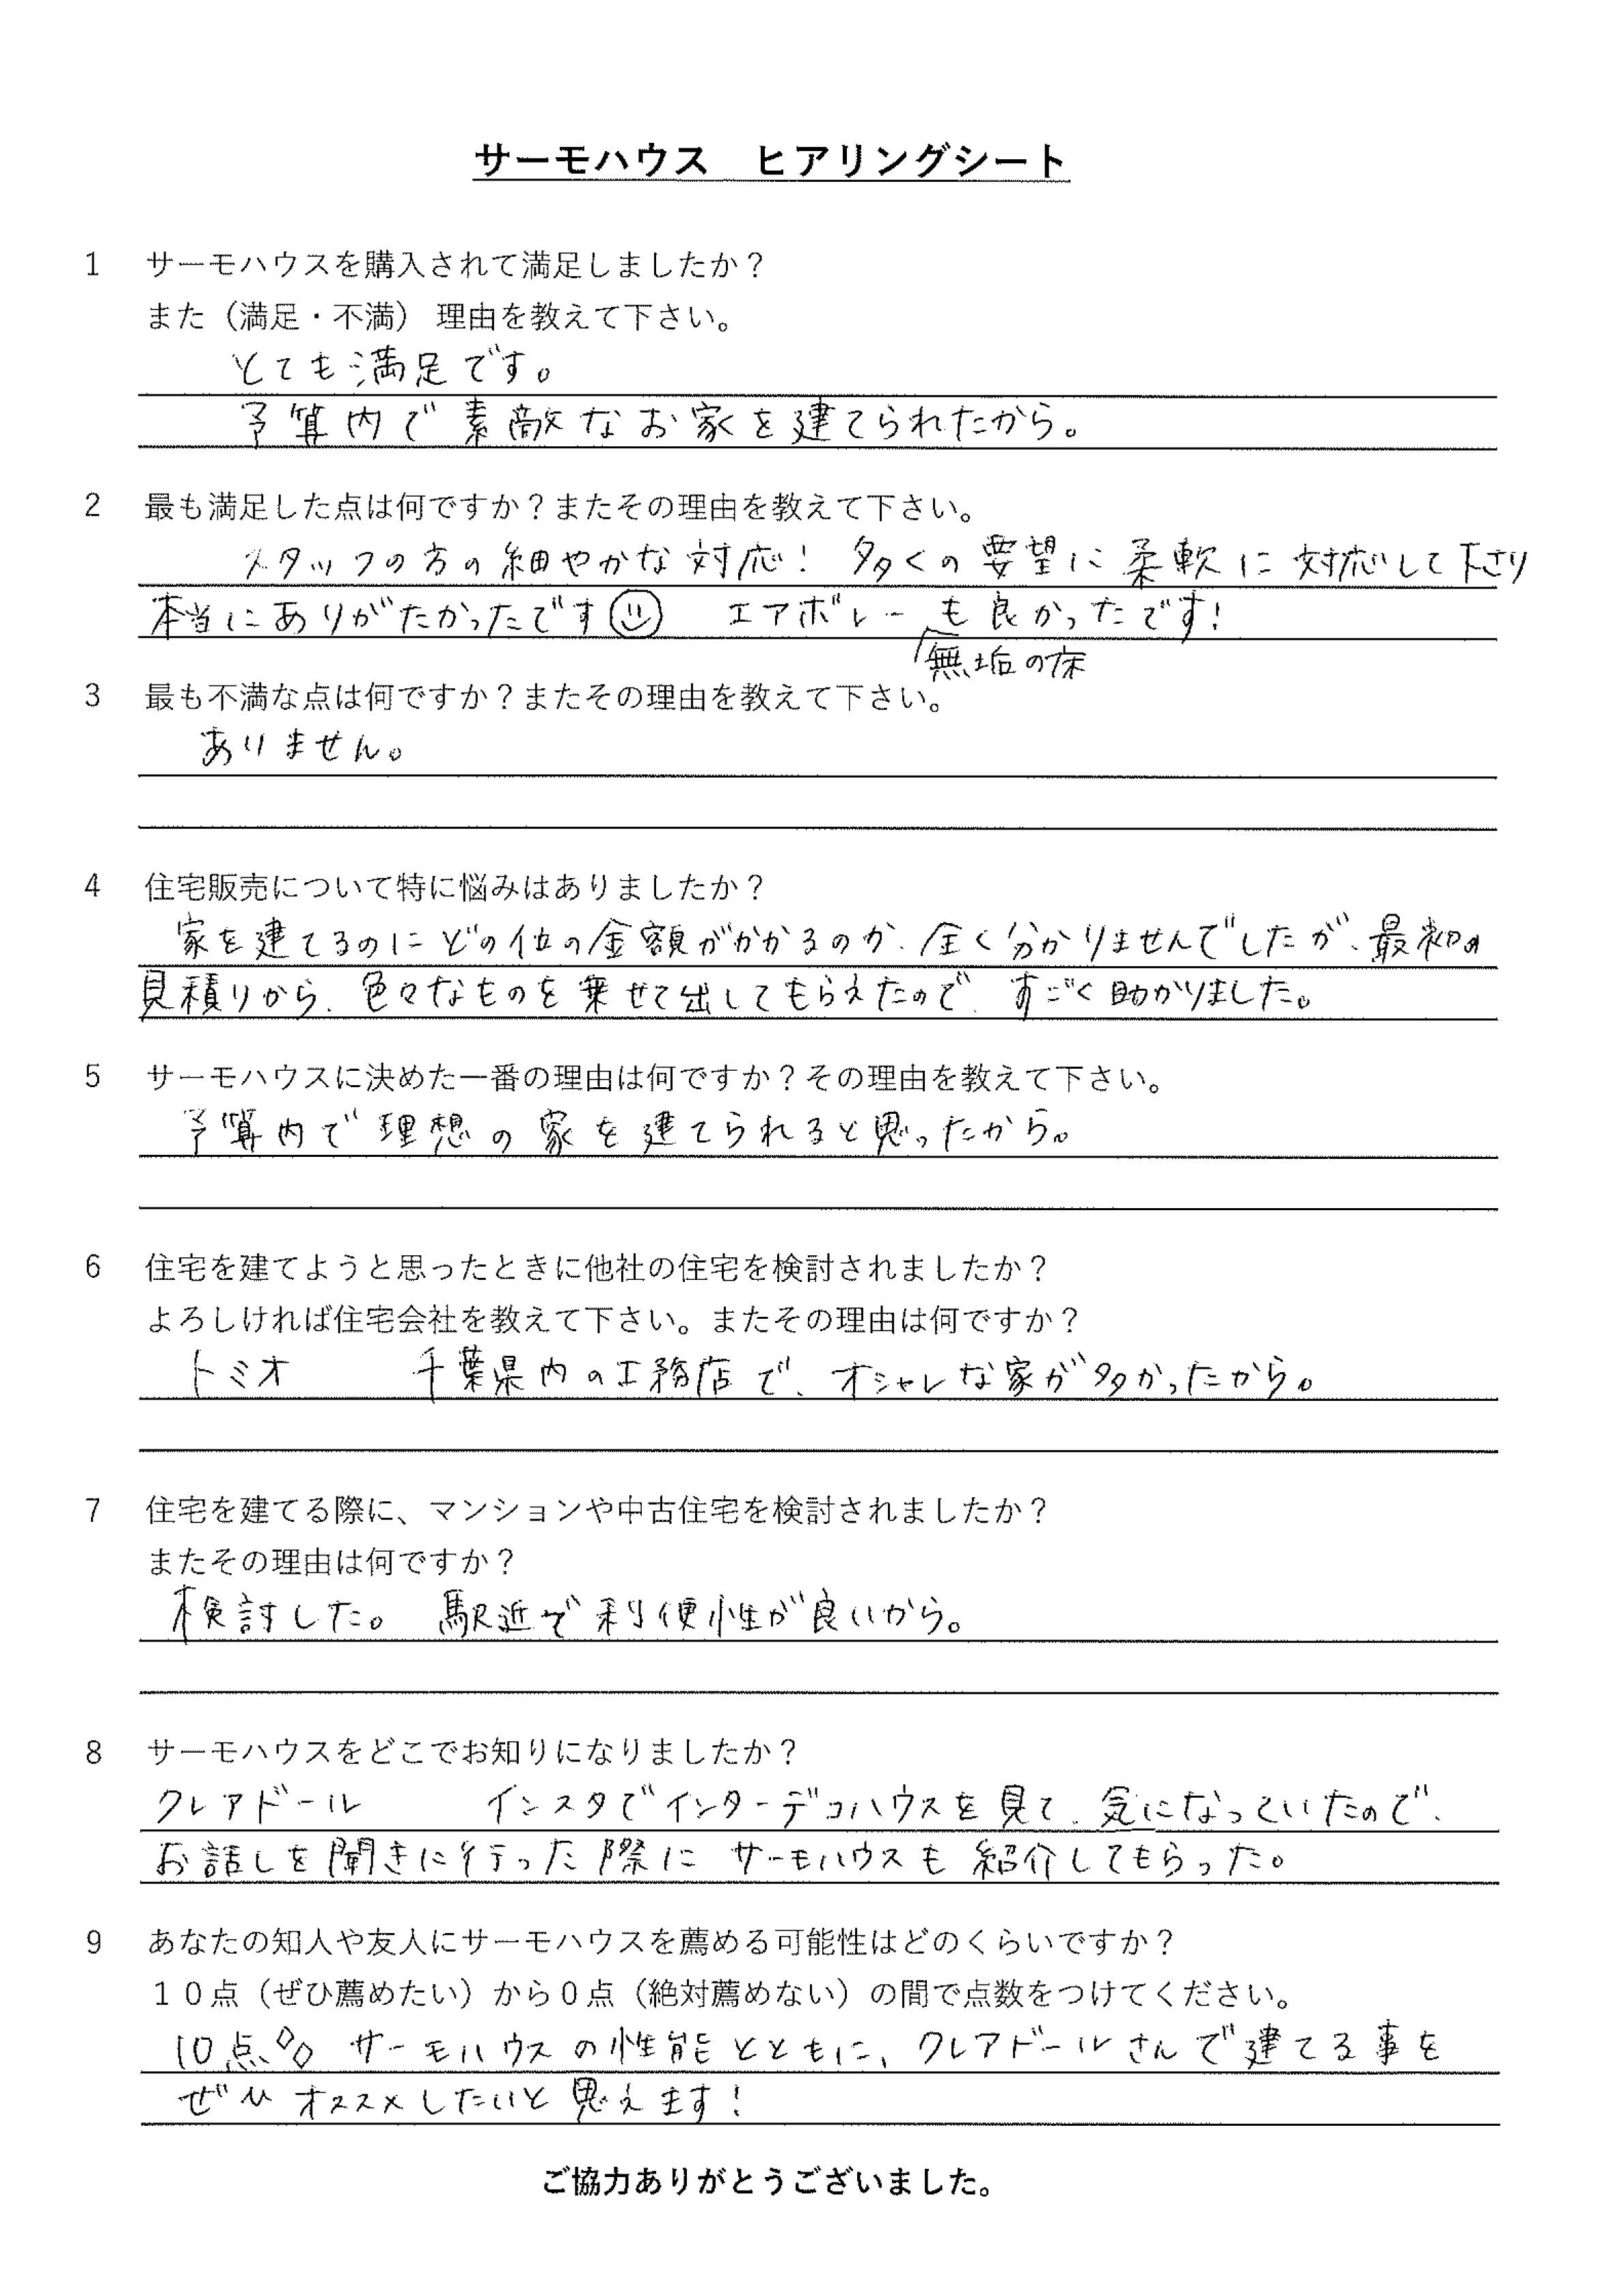 サーモハウス　ヒアリングシート
1　サーモハウスを購入されて満足しましたか？
また（満足・不満） 理由を教えて下さい。
とても満足です。
予算内で素敵なお家を建てられたから。
2　最も満足した点は何ですか？またその理由を教えて下さい。
スタッフの方の細やかな対応！ 多くの要望に柔軟に対応して下さり
本当にありがたかったです☺　エアボレーも良かったです！
無垢の床
3　最も不満な点は何ですか？またその理由を教えて下さい。
ありません。
4　住宅販売について特に悩みはありましたか？
家を建てるのにどの位の金額がかかるのか、全く分かりませんでしたが、最初の
見積りから、色々なものを乗せて出してもらえたので、すごく助かりました。
5　サーモハウスに決めた一番の理由は何ですか？その理由を教えて下さい。
予算内で理想の家を建てられると思ったから。
6　住宅を建てようと思ったときに他社の住宅を検討されましたか？
よろしければ住宅会社を教えて下さい。またその理由は何ですか？
トミオ　　千葉県内の工務店で、オシャレな家が多かったから。
7　住宅を建てる際に、マンションや中古住宅を検討されましたか？
またその理由は何ですか？
検討した。 駅近で利便性が良いから。
8　サーモハウスをどこでお知りになりましたか？
クレアドール　　インスタでインターデコハウスを見て、気になっていたので、
お話しを聞きに行った際に サーモハウスも紹介してもらった。
9　あなたの知人や友人にサーモハウスを薦める可能性はどのくらいですか？
１０点（ぜひ薦めたい）から０点（絶対薦めない）の間で点数をつけてください。
10点 サーモハウスの性能とともに、クレアドールさんで建てる事を
ぜひ オススメしたいと思えます！
ご協力ありがとうございました。